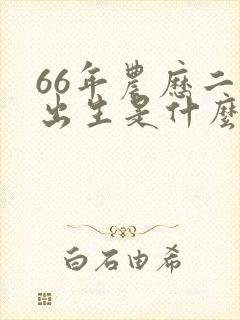 66年農歷二
出生是什麼
白石由希